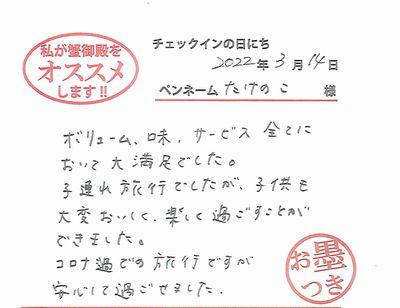 私が蟹御殿を
オススメ
します!!
チェックインの日にち
2022年3月14日
ペンネーム たけのこ 様
ボリューム、味、サービス 全てに
おいて大満足でした。
子連れ旅行でしたが、子供も
大変おいしく、楽しく過ごすことが
できました。
コロナ過での旅行ですが
安心して過ごせました。
お墨
つき